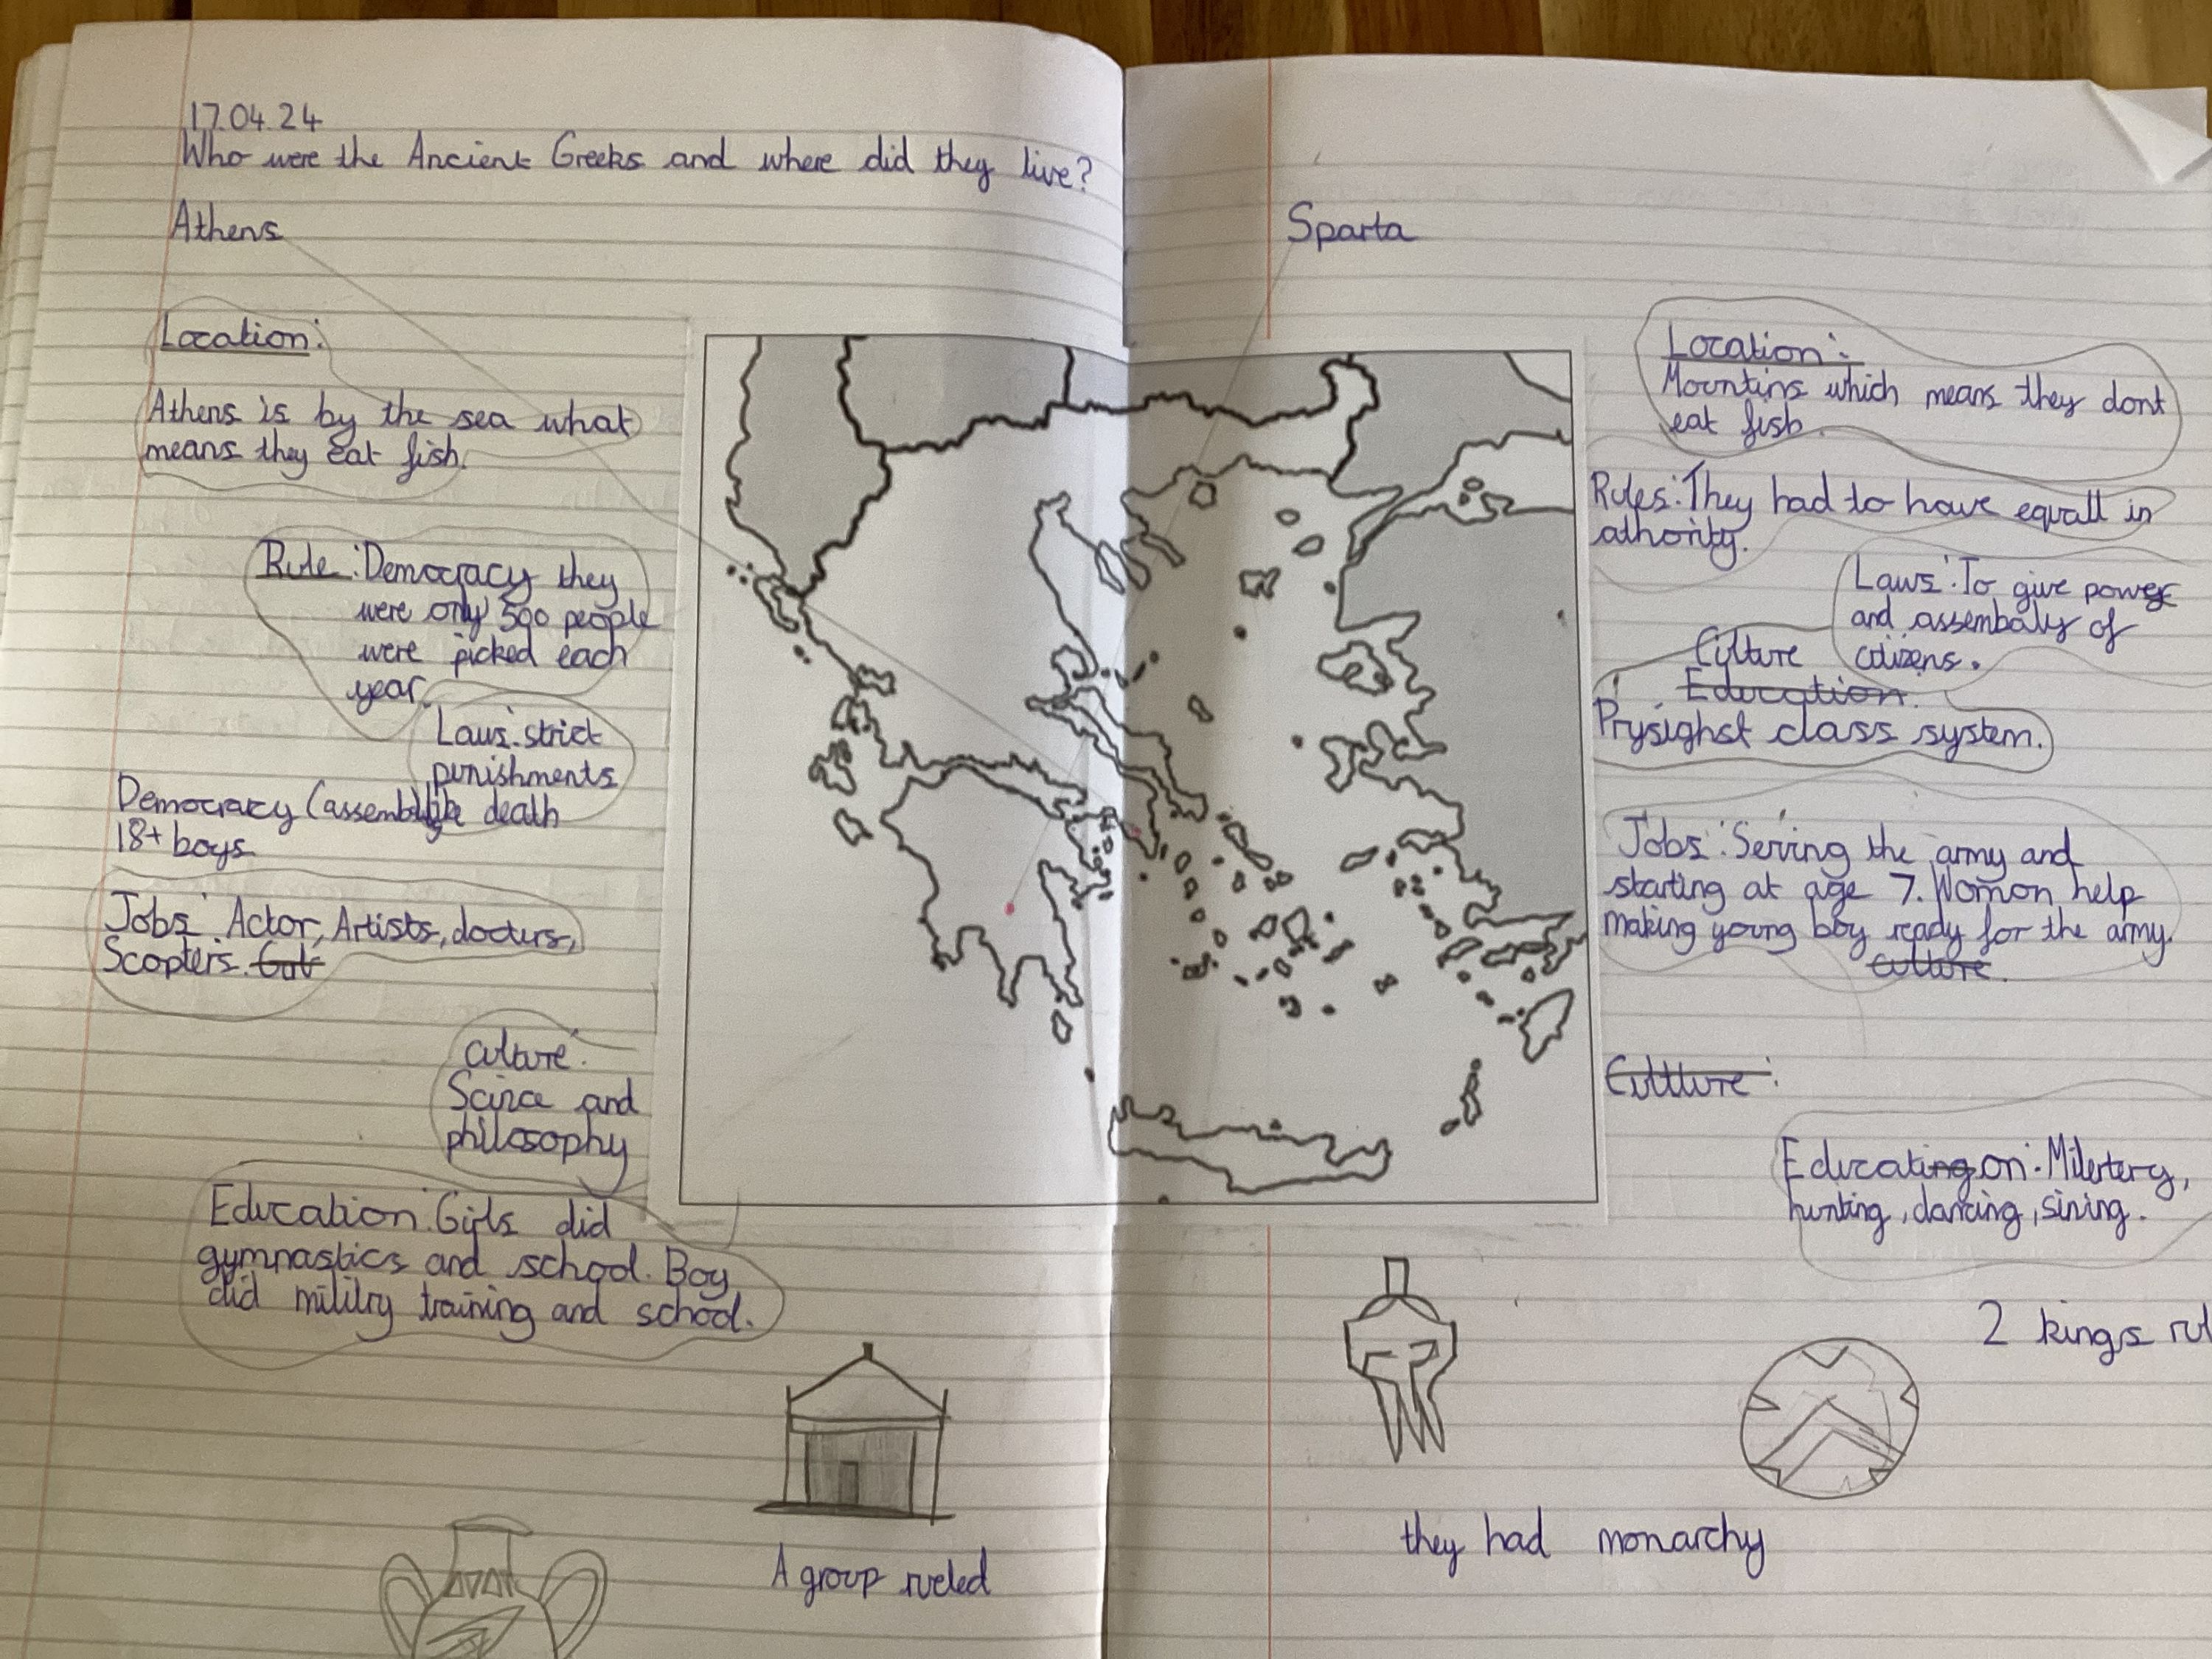 17.04.24
Who were the Ancient Greeks and where did they live?
Athens
Location:
Athens is by the sea what
means they eat fish.
Rule: Democracy they
were only 500 people
were picked each
year.
Laws: strict
punishments
like death
Democracy (assembly
18+ boys
Jobs: Actor, Artists, docturs,
Scopters.
Culture:
Scince and
philosophy
Education: Girls did
gymnastics and school. Boy
did militry training and school.
A group ruled
Sparta
Location:
Mountins which means they dont
eat fish.
Rules: They had to have equall in
athority.
Laws: To give power
and assembaly of
citizens.
Culture
Education
Prysighst class system.
Jobs: Serving the army and
starting at age 7. Women help
making young boy ready for the army.
culture
Cultture:
Education: Milertery,
hunting, dancing, sining.
2 kings rul
they had monarchy